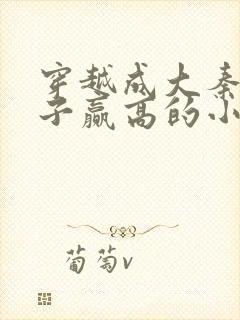 穿越成大秦
子赢高的小
葡萄v